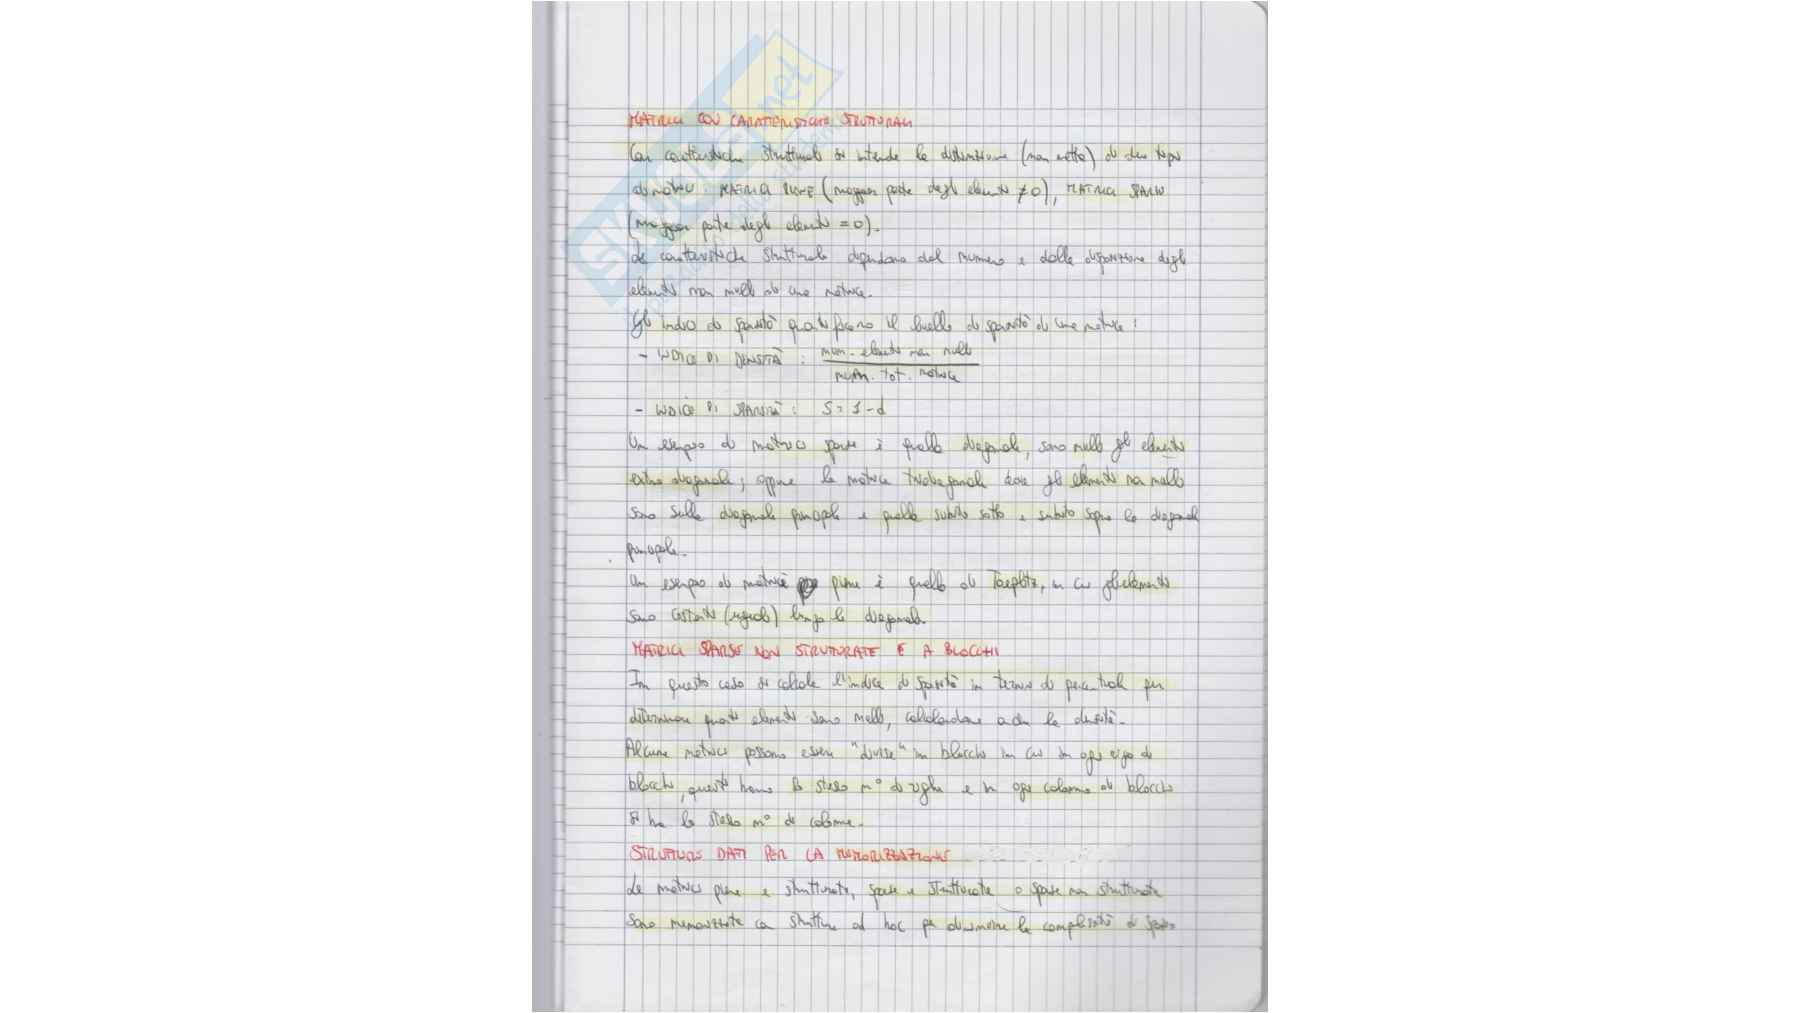 MATRICI CON CARATTERISTICHE STRUTTURALI
Con caratteristiche strutturali si intende la distinzione (non netta) di due tipi
di matrici: MATRICI PIENE (maggior parte degli elementi ≠0), MATRICI SPARSE
(maggior parte degli elementi =0).
Le caratteristiche strutturali dipendono dal numero e dalla disposizione degli
elementi non nulli di una matrice.
Gli indici di sparsità quantificano il livello di sparsità di una matrice:
- INDICE DI DENSITÀ : num. elementi non nulli
num. tot. matrice
- INDICE DI SPARSITÀ : S = 1-d
Un esempio di matrici sparse è quella diagonale, sono nulli gli elementi
extra diagonale; oppure la matrice tridiagonale dove gli elementi non nulli
sono sulla diagonale principale e quelle subito sotto e subito sopra la diagonale
principale.
Un esempio di matrice piene è quella di Toeplitz, in cui gli elementi
sono costanti (uguali) lungo le diagonali.
MATRICI SPARSE NON STRUTTURATE E A BLOCCHI
In questo caso si calcola l'indice di sparsità in termini di percentuale per
determinare quanti elementi sono nulli, calcolandone anche la densità.
Alcune matrici possono essere "divise" in blocchi in cui in ogni riga di
blocchi, questi hanno lo stesso n° di righe e in ogni colonna di blocchi
si ha lo stesso n° di colonne.
STRUTTURE DATI PER LA MEMORIZZAZIONE
Le matrici piene e strutturate, sparse e strutturate o sparse non strutturate
sono memorizzate con strutture ad hoc per diminuire la complessità di spazio
skuola.net